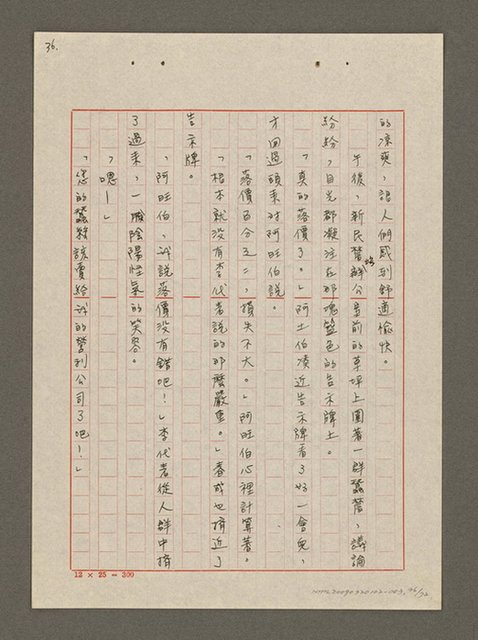 36.
的涼爽，讓人們感到舒適愉快。
午後，新民蠶業公司前的草坪上圍著一群蠶農，議論
紛紛，目光都凝注在那塊藍色的告示牌上。
「真的落價了。」阿土伯湊近告示牌看了好一會兒，
才回過頭來對阿旺伯說。
「落價百分之二，損失不大。」阿旺伯心裡計算著。
「根本就沒有李代者說的那麼嚴重。」春成也擠近了
告示牌。
「阿旺伯，我說落價沒有錯吧！」李代者從人群中擠
了過來，一臉陰陽怪氣的笑容。
「嗯！」
「您的蠶繭該賣給我的營利公司了吧！」
12 × 25 = 300